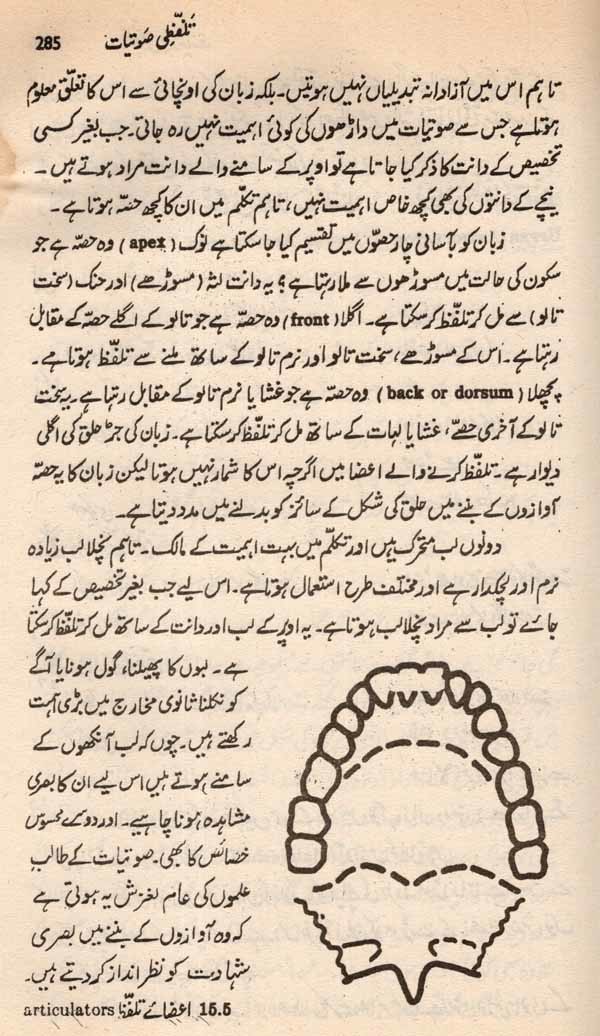 تلفّظی صوتیات 285
تاہم اس میں آزادانہ تبدیلیاں نہیں ہوتیں۔ بلکہ زبان کی اونچائی سے اس کا تعلّق معلوم
ہوتا ہے جس سے صوتیات میں داڑھوں کی کوئی اہمیت نہیں رہ جاتی۔ جب بغیر کسی
تخصیص کے دانت کا ذکر کیا جاتا ہے تو اوپر کے سامنے والے دانت مراد ہوتے ہیں۔
نیچے کے دانتوں کی بھی کچھ خاص اہمیت نہیں، تاہم تکلّم میں ان کا کچھ حصّہ ہوتا ہے۔
زبان کو بآسانی چار حصّوں میں تقسیم کیا جا سکتا ہے نوک (apex) وہ حصّہ ہے جو
سکون کی حالت میں مسوڑھوں سے ملا رہتا ہے؟ یہ دانت لثہ (مسوڑھے) اور حنک (سخت
تالو) سے مل کر تلفّظ کر سکتا ہے۔ اگلا (front) وہ حصّہ ہے جو تالو کے اگلے حصّہ کے مقابل
رہتا ہے۔ اس کے مسوڑھے، سخت تالو اور نرم تالو کے ساتھ ملنے سے تلفّظ ہوتا ہے۔
پچھلا (back or dorsum) وہ حصّہ ہے جو غشا یا نرم تالو کے مقابل رہتا ہے۔ یہ سخت
تالو کے آخری حصّے، غشا یا لہات کے ساتھ مل کر تلفّظ کر سکتا ہے۔ زبان کی جڑ حلق کی اگلی
دیوار ہے۔ تلفّظ کرنے والے اعضا میں اگرچہ اس کا شمار نہیں ہوتا لیکن زبان کا یہ حصّہ
آوازوں کے بننے میں حلق کی شکل کے سائز کو بدلنے میں مدد دیتا ہے۔
دونوں لب متحرک ہیں اور تکلّم میں بہت اہمیت کے مالک۔ تاہم نچلا لب زیادہ
نرم اور لچکدار ہے اور مختلف طرح استعمال ہوتا ہے۔ اس لیے جب بغیر تخصیص کے کہا
جائے تو لب سے مراد نچلا لب ہوتا ہے۔ یہ اوپر کے لب اور دانت کے ساتھ مل کر تلفّظ کر سکتا
ہے۔ لبوں کا پھیلنا، گول ہونا یا آگے
کو نکلنا ثانوی مخارج میں بڑی اہمیت
رکھتے ہیں۔ چوں کہ لب آنکھوں کے
سامنے ہوتے ہیں اس لیے ان کا بصری
مشاہدہ ہونا چاہیے۔ اور دوسرے محسوس
خصائص کا بھی۔ صوتیات کے طالب
علموں کی عام لغزش یہ ہوتی ہے
کہ وہ آوازوں کے بننے میں بصری
شہادت کو نظر انداز کر دیتے ہیں۔
15.5 اعضائے تلفّظ articulators